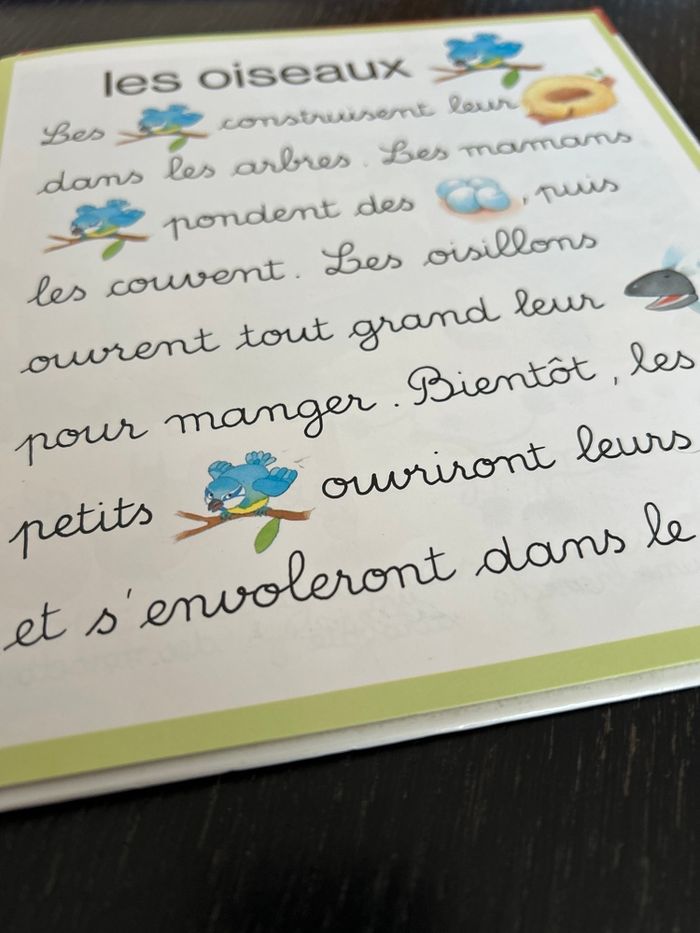 les oiseaux
Les construisent leur
dans les arbres. Les mamans
pondent des , puis
les couvent. Les oisillons
ouvrent tout grand leur
pour manger. Bientôt, les
petits ouvriront leurs
et s'envoleront dans le